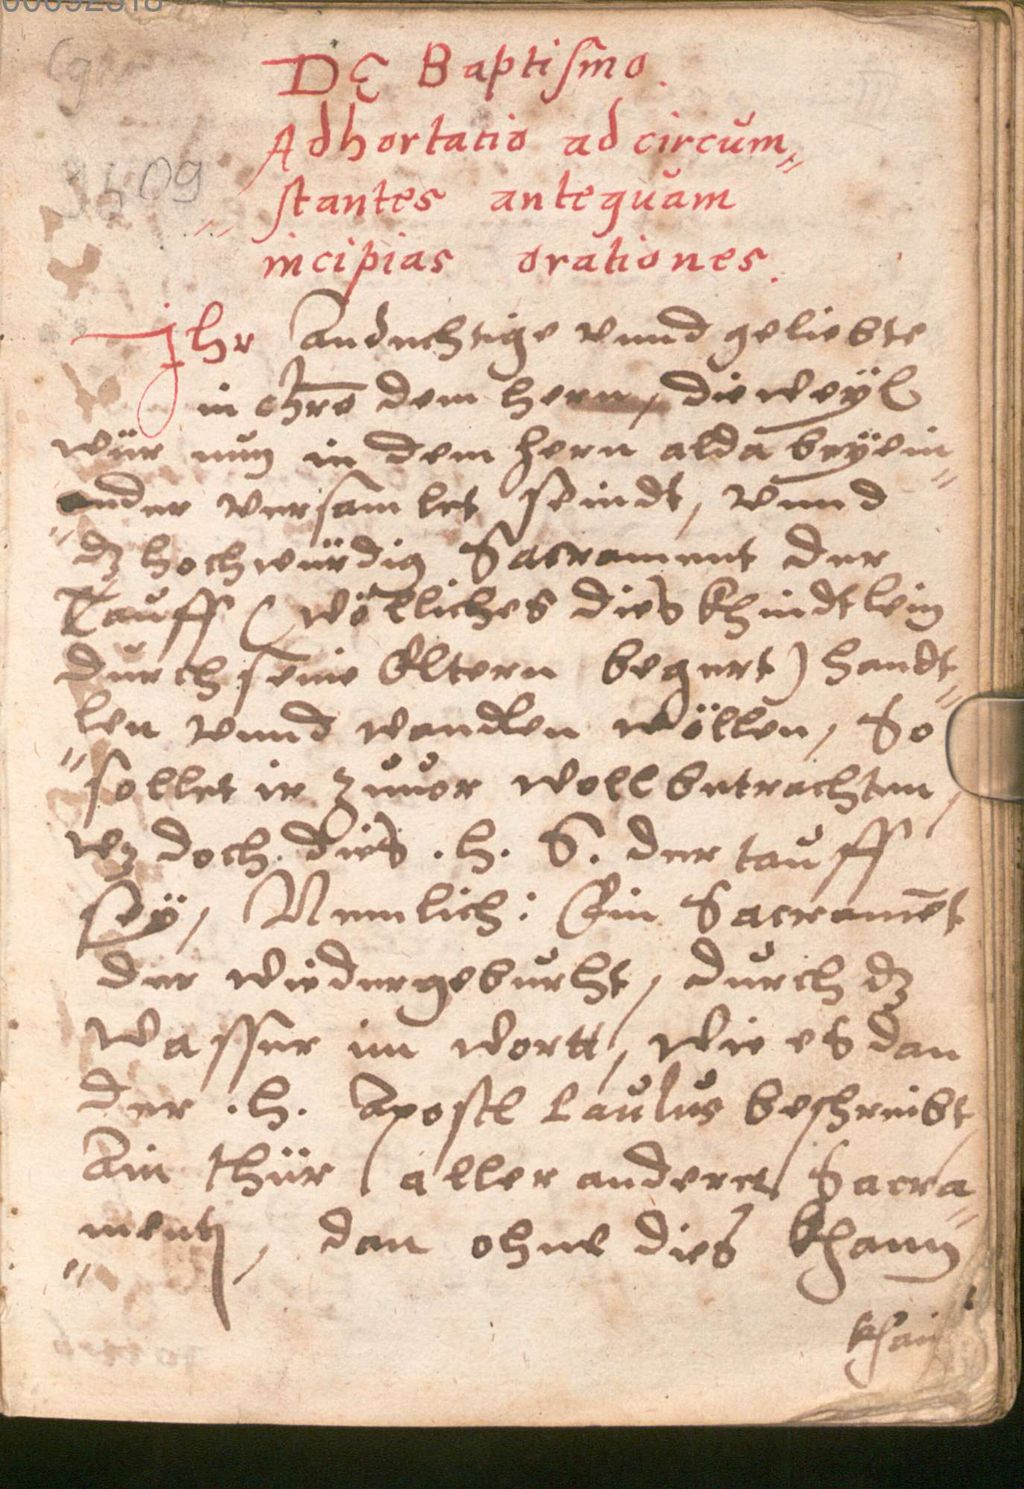 DE Baptismo.
Adhortatio ad circum„
„stantes antequam
incipias orationes.
Ihr Andechtige vnnd geliebte
in chr̄o dem hern, die weÿl
wür nun in dem hern alda beÿein„
„ander versamlet seindt, vnnd
dz hochwürdig Sacrament der
Tauff (wölliches dies khindtlein
durch seine Eltern begert) handt„
„len vnnd wandlen wöllen, So
sollet ir zuuor woll betrachten,
wz doch dies .h. S. der tauff
seÿ, Nemlich: Ein Sacramēt
der widergeburht, durch dz
Wasser im wortt, wie es dan
der .h. Apostl Paulus beschreibt,
Ain thür aller anderen Sacra„
„ment, dan ohne dies khann
khain